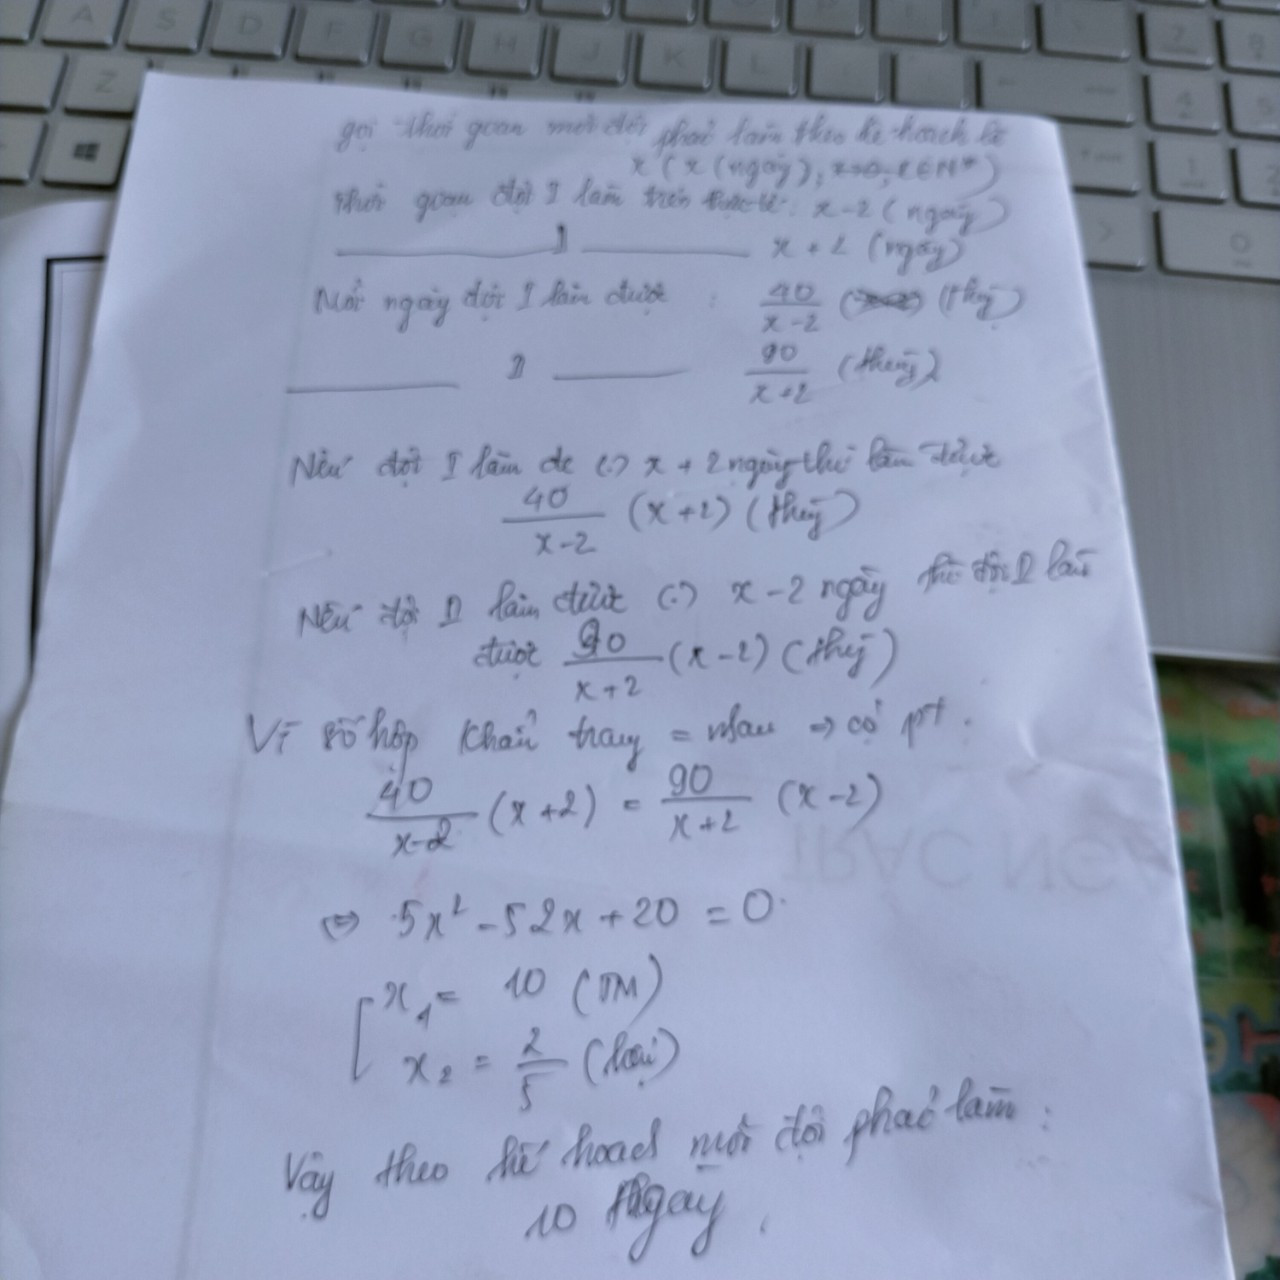 A S D F G H J K L
Z
gọi thời gian mỗi đội phải làm theo kế hoạch là
x (x (ngày), x>0, x∈N*)
thời gian đội I làm trên thực tế: x-2 (ngày)
II x + 2 (ngày)
Mỗi ngày đội I làm được : 40/(x-2) (thùg)
II 90/(x+2) (thùng)
Nếu đội I làm đc (.) x + 2 ngày thì làm được
40/(x-2) (x+2) (thùg)
Nếu đội II làm được (.) x-2 ngày thì đội II làm
được 90/(x+2) (x-2) (thùg)
Vì số hộp khẩu trang = nhau => có pt:
40/(x-2) (x+2) = 90/(x+2) (x-2)
<=> 5x² - 52x + 20 = 0
[ x₁ = 10 (TM)
x₂ = 2/5 (loại)
Vậy theo kế hoạch mỗi đội phải làm:
10 Ngày.
TRẮC NG